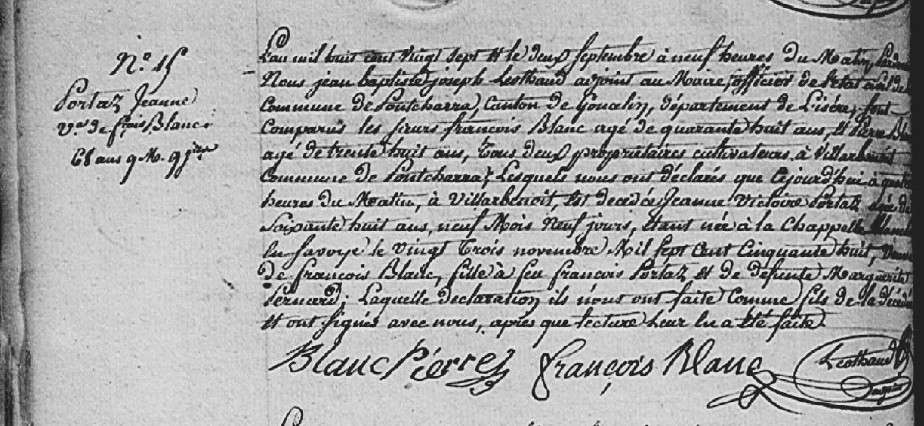 N.º 15
Portaz Jeanne
V.ve de f.çois Blanc
68 ans 9 M. 9 j.rs
L'an mil huit cent vingt sept et le deux septembre à neuf heures du Matin, par devant
Nous jean baptiste joseph Leothaud adjoint au Maire, officier de l'état civil de la
Commune de Pontcharra, Canton de Goncelin, département de L'isère, sont
Comparus les sieurs françois Blanc agé de quarante huit ans, et Pierre Blanc
agé de trente huit ans, Tous deux propriétaires cultivateurs à Villarbenoit
Commune de Pontcharra; Lesquels nous ont déclarés que cejourd'hui à quatre
heures du Matin, à Villarbenoit, Est decédée Jeanne Victoire Portaz agée de
Soixante huit ans, neuf Mois Neuf jours, étant née à la Chapelle
En Savoye le vingt Trois novembre Mil Sept Cent Cinquante huit, Veuve
de françois Blanc, fille à feu françois Portaz et de defunte Marguerite
Pernard; Laquelle declaration ils nous ont faite Comme fils de la décédée
Et ont signés avec nous, après que lecture Leur en a été faite.
Blanc Pierre françois Blanc Leothaud
adjoint